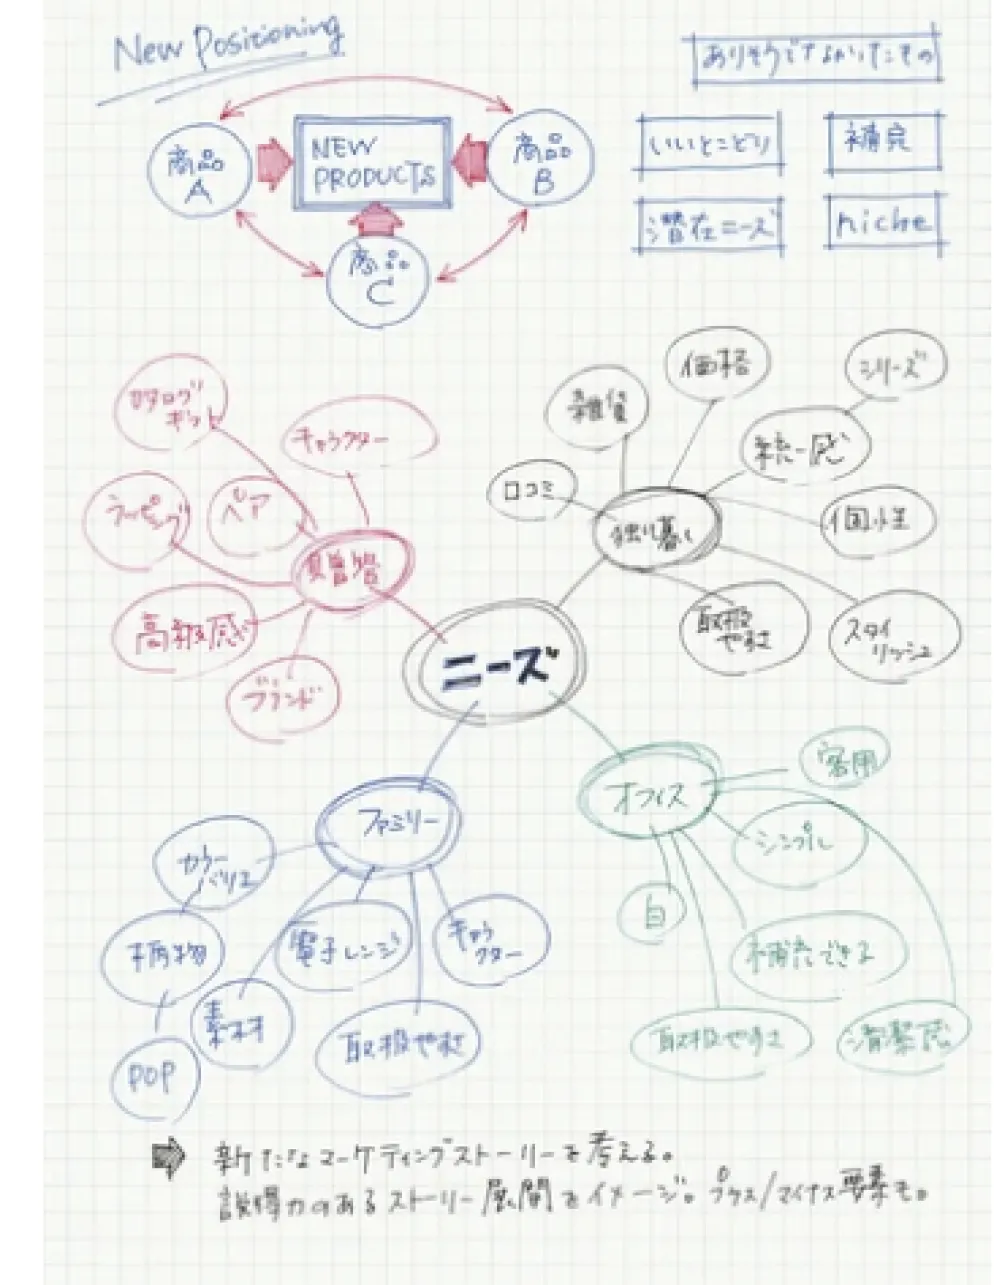 New Positioning
ありそうでなかったもの
商品
A
NEW
PRODUCTS
商品
B
商品
C
いいとこどり
補完
潜在ニーズ
niche
カタログ
ギフト
キャラクター
ラッピング
ペア
贈答
高級感
ブランド
雑貨
価格
シリーズ
統一感
口コミ
独り暮し
個性
取扱
やすさ
スタイ
リッシュ
ニーズ
ファミリー
カラー
バリエ
柄物
POP
素材
電子レンジ
キャラ
クター
取扱やすさ
オフィス
客用
シンプル
白
補充できる
取扱やすさ
清潔感
新たなマーケティングストーリーを考える。
説得力のあるストーリー展開をイメージ。プラス/マイナス要素も。